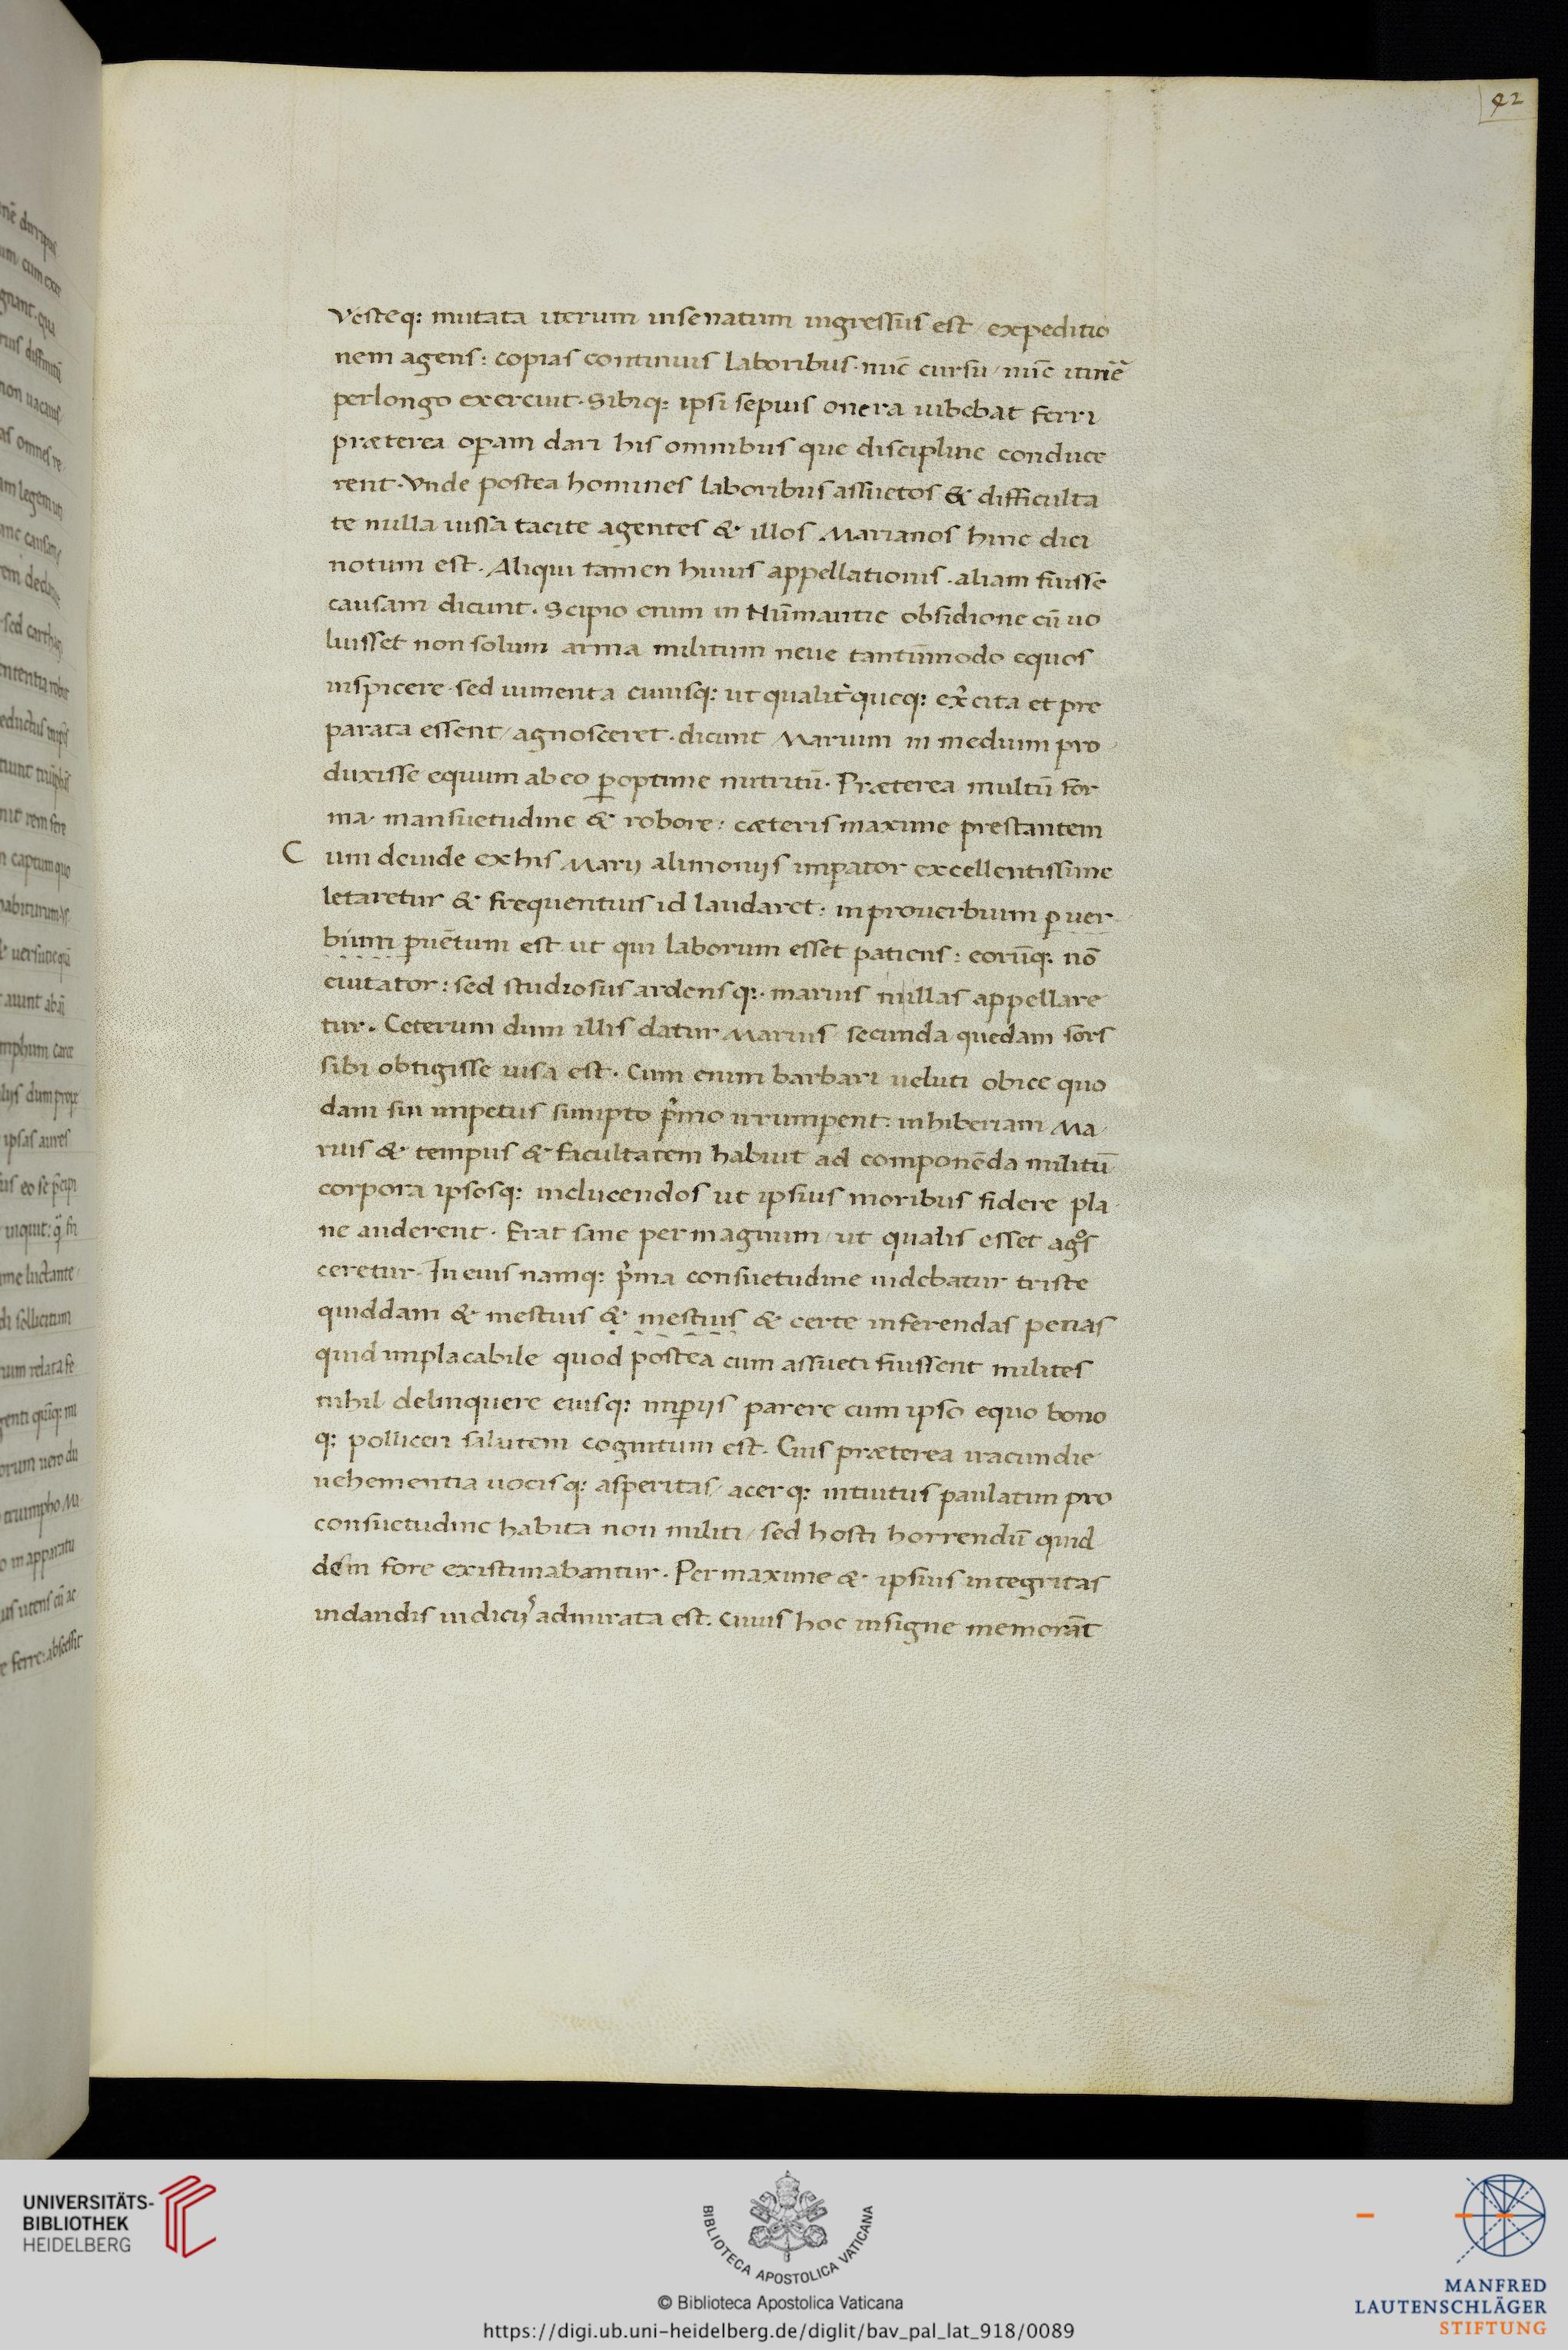 42
Vesteq: mutata iterum insenatum ingressus est / expeditio
nem agens: copias continuis laboribus. nūc cursu / nūc itinē
perlongo exercuit. Sibiq: ipsi sepius onera iubebat ferri
præterea opam dari his omnibus que discipline conduce
rent. Vnde postea homines laboribus assuetos & difficulta
te nulla iussa tacite agentes & illos Marianos hinc dici
notum est. Aliqui tamen huius appellationis. aliam fuisse
causam dicunt. Scipio enim in Nūmantie obsidione cū uo
luisset non solum arma militum neue tantūmodo equos
inspicere. sed iumenta cuiusq: ut qualit̉ queq: ex̉cita et pre
parata essent / agnosceret. dicunt Marium in medium pro
duxisse equum ab eo p̱optime nutritū. Præterea multū for
ma. mansuetudine & robore: cæteris maxime prestantem
C um deinde ex his Marij alimonijs imp̱ator excellentissime
letaretur & frequentius id laudaret: in prouerbium p̱ uer
bium p̱uētum est ut qui laborum esset patiens: eorūq: nō
euitator: sed studiosus ardensq:. marius nullas appellare
tur. Ceterum dum illis datur Marius / secunda quedam sors
sibi obtigisse uisa est. Cum enim barbari ueluti obice quo
dam sui impetus sumpto p̉mo irrump̱ent: in hiberiam Ma
rius & tempus & facultatem habuit ad componēda militū
corpora ipsosq: inducendos ut ipsius moribus fidere pla
ne auderent. Erat sane per magnum / ut qualis esset agōs
ceretur. In eius namq: p̉ma consuetudine uidebatur triste
quiddam & mestius & mestius & certe inferendas penas
quid implacabile quod postea cum assueti fuissent milites
nihil delinquere eiusq: imp̱ijs parere cum ipso equo bono
q: polliceri salutem cognitum est. Cuis præterea iracundie
uehementia uocisq: asperitas / acerq: intuitus paulatim pro
consuetudine habita non militi / sed hosti horrendū quid
dem fore existimabantur. Per maxime & ipsius integritas
indandis iudicijs admirata est. Cuius hoc insigne memorāt
UNIVERSITÄTS-
BIBLIOTHEK
HEIDELBERG
BIBLIOTECA APOSTOLICA VATICANA
© Biblioteca Apostolica Vaticana
https://digi.ub.uni-heidelberg.de/diglit/bav_pal_lat_918/0089
MANFRED
LAUTENSCHLÄGER
STIFTUNG